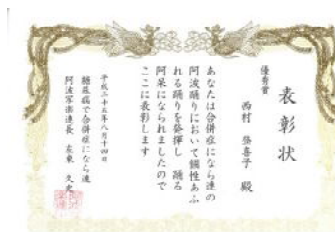 表彰状
優秀賞
西村 登喜子 殿
あなたは合併症になら連の
阿波踊りにおいて個性あふ
れる踊りを発揮し 踊る
阿呆になられましたので
ここに表彰します
平成二十五年八月十四日
糖尿病で合併症になら連
阿波写楽連長